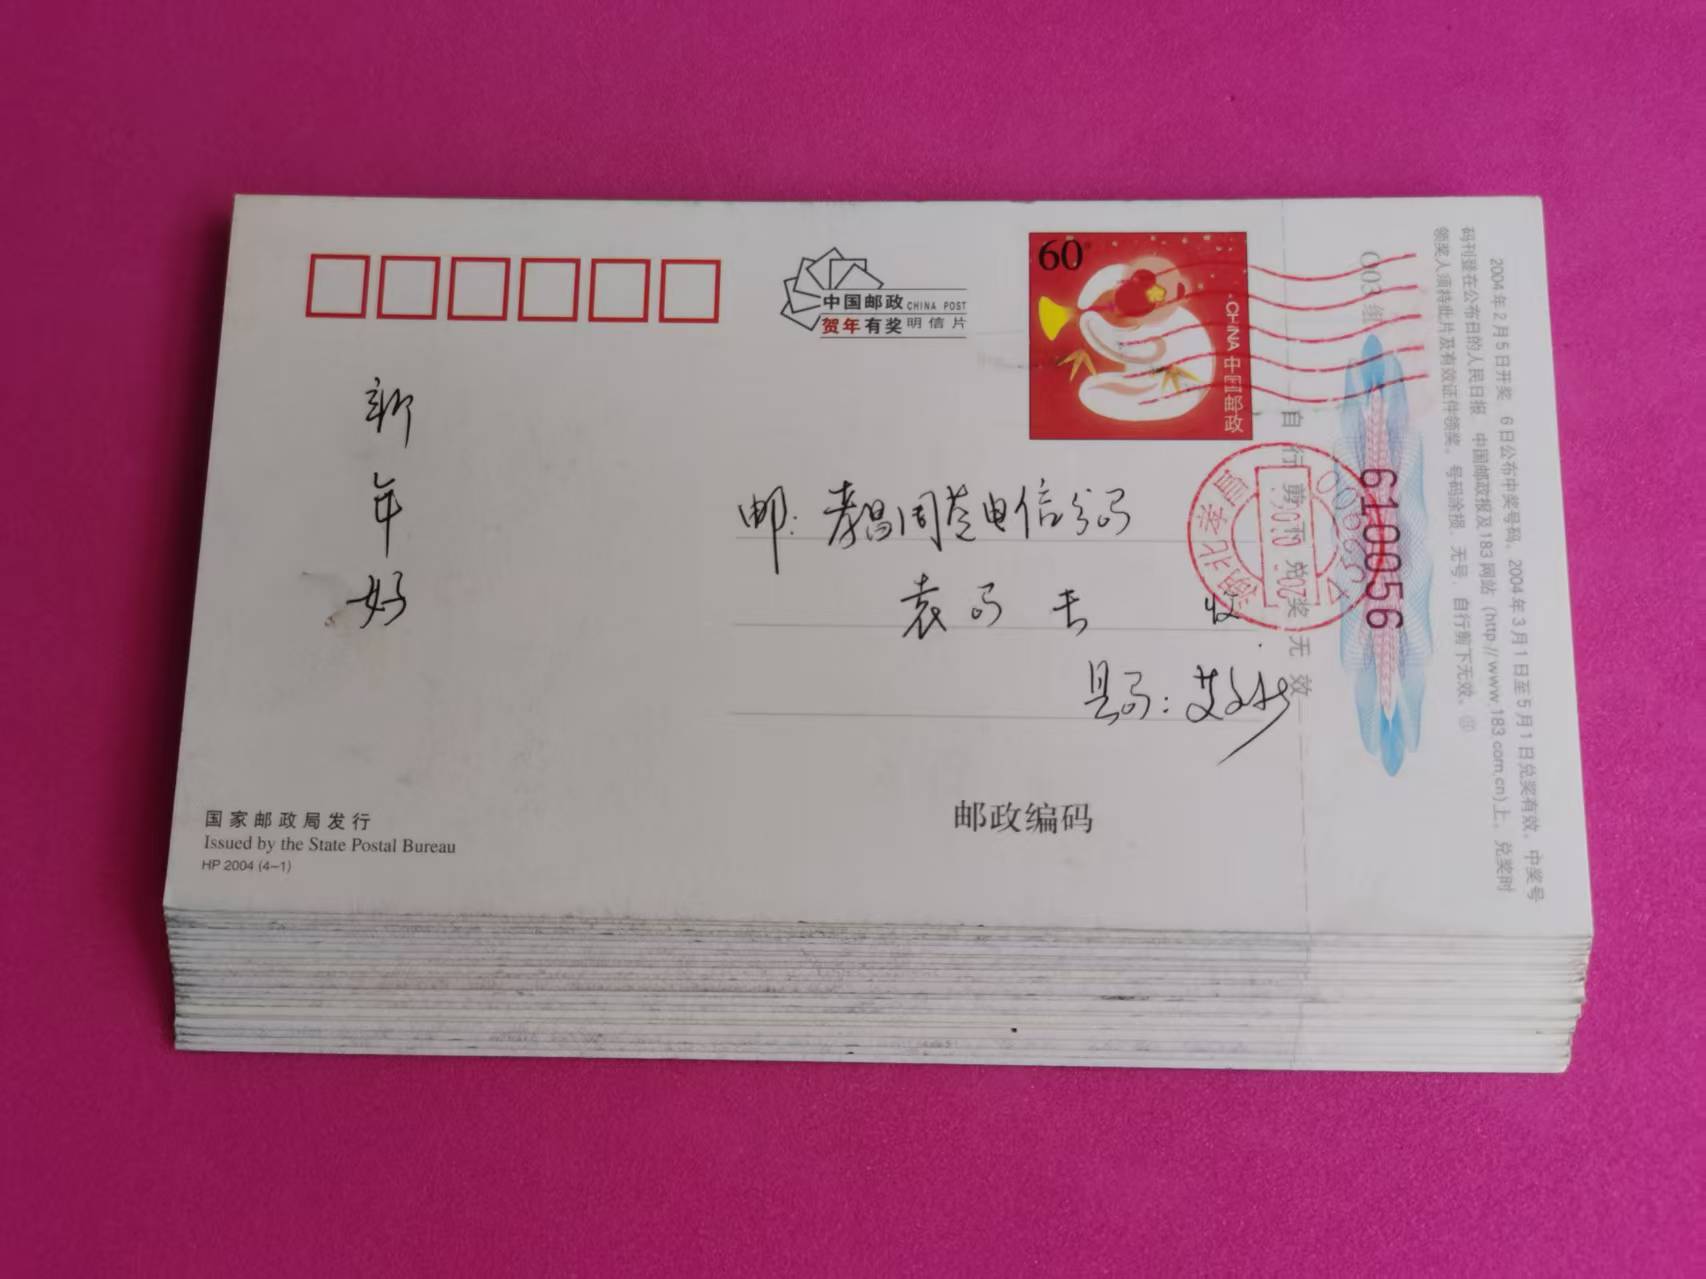 中国邮政 CHINA POST
贺年有奖 明信片
60
CHINA 中国邮政
新年好
邮：孝昌周巷电信分局
袁局长 收
县局：艾
邮政编码
国家邮政局发行
Issued by the State Postal Bureau
HP 2004 (4-1)
自行剪下兑奖无效
003组
610056
湖北孝昌
2004年2月5日开奖 6日公布中奖号码，2004年3月1日至5月1日兑奖有效。中奖号
码刊登在公布日的人民日报 中国邮政报及183网站（http://www.183.com.cn)上。兑奖时
领奖人须持此片及有效证件领奖。号码涂损、无号、自行剪下无效。